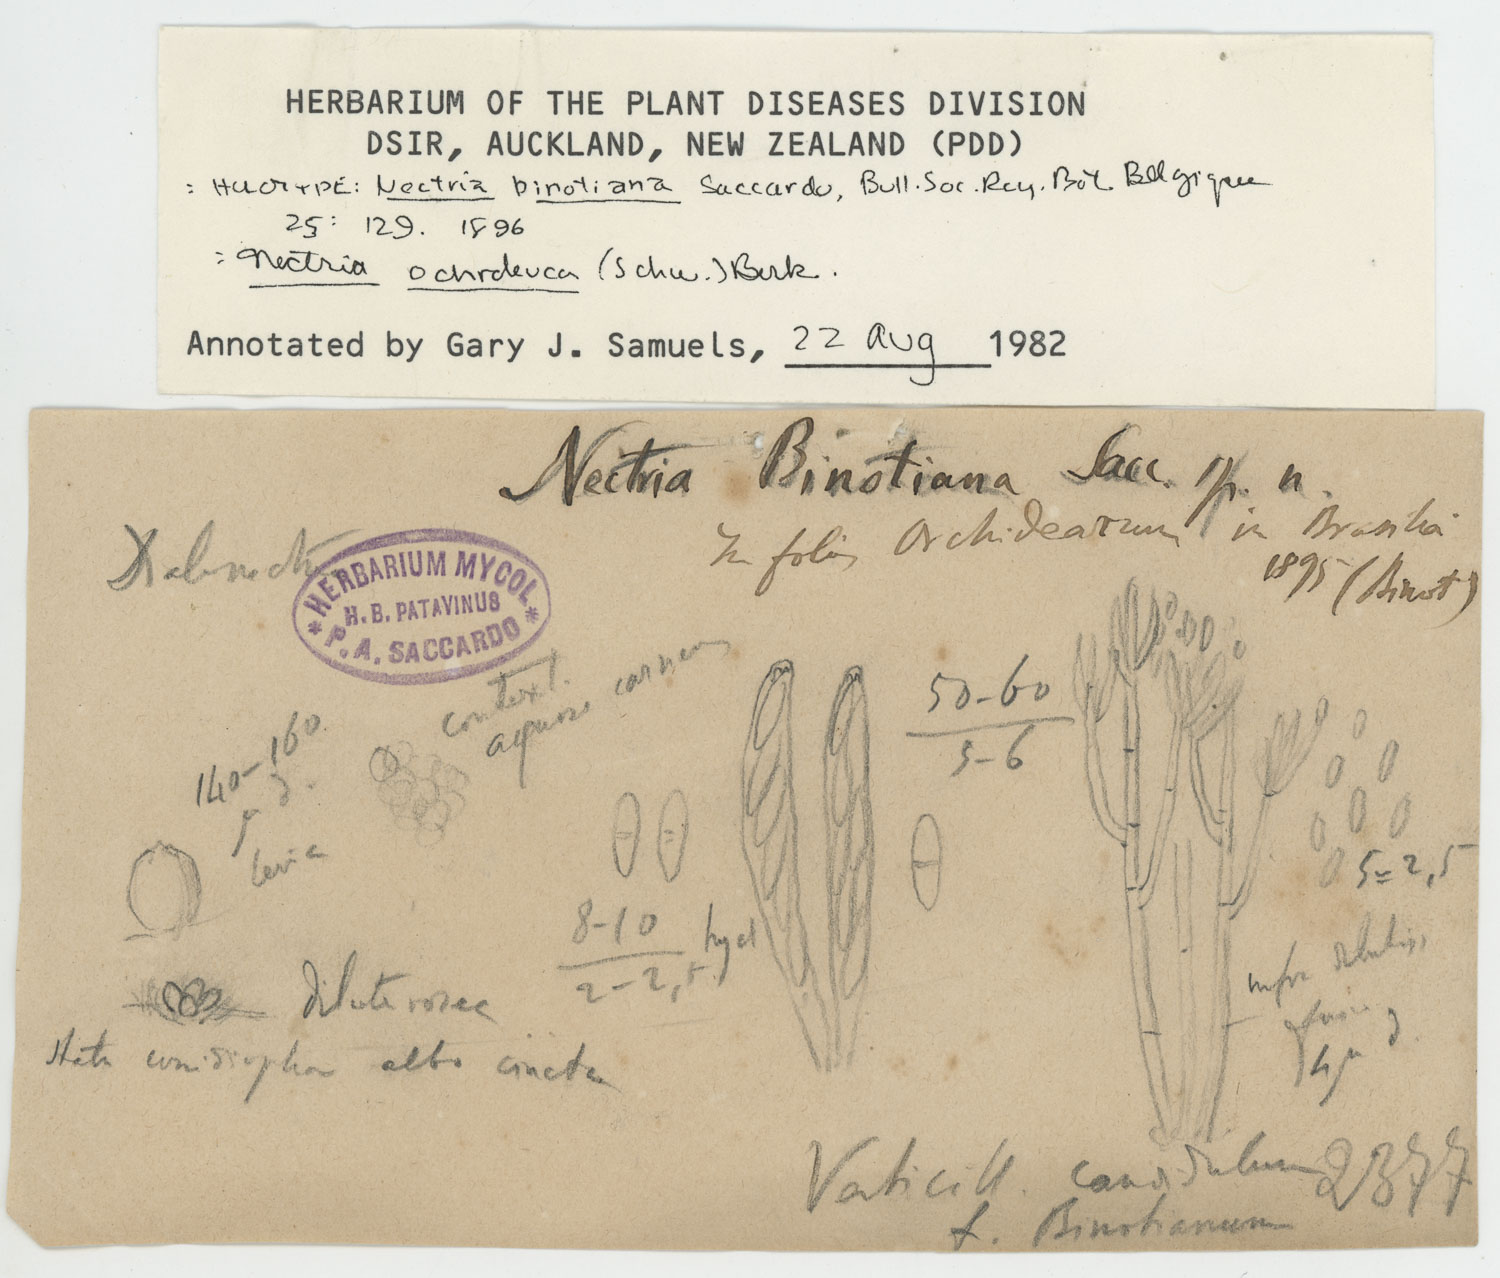 HERBARIUM OF THE PLANT DISEASES DIVISION
DSIR, AUCKLAND, NEW ZEALAND (PDD)
: HOLOTYPE: Nectria binotiana Saccardo, Bull. Soc. Roy. Bot. Belgique
25: 129. 1896
: Nectria ochroleuca (Schw.) Berk.
Annotated by Gary J. Samuels, 22 Aug 1982
Nectria Binotiana Sacc. sp. n.
In foliis Orchidearum in Brasilia
1895 (Binot)
HERBARIUM MYCOL.
H. B. PATAVINUS
* P. A. SACCARDO *
context.
aquose carneus
140-160
μ d.
levia
50-60
5-6
8-10
2-2,5 hyal
5=2,5
dilute rosea
conidiophor albo cincta
4 μ d.
Verticill. candidulum 2377
f. Binotianum